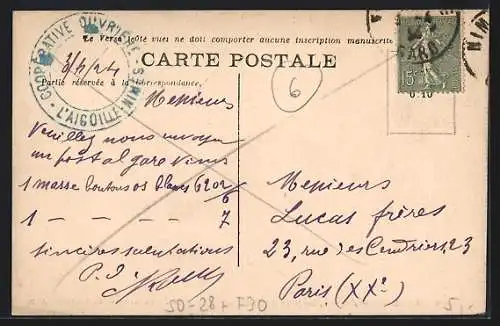 COOPERATIVE OUVRIERE
L'AIGOUAL
Le Verso côté vues ne doit comporter aucune inscription manuscrite
CARTE POSTALE
Partie réservée à la Correspondance.
3/5/24
GARD
15c
6
Messieurs
Veuillez nous envoyer
un postal gare
1 masse boutons os blancs 6202/6
1 — — — — 7
sincères salutations
Messieurs
Lucas frères
23, rue des Cendriers, 23
Paris (XXe)
50=28 + F30